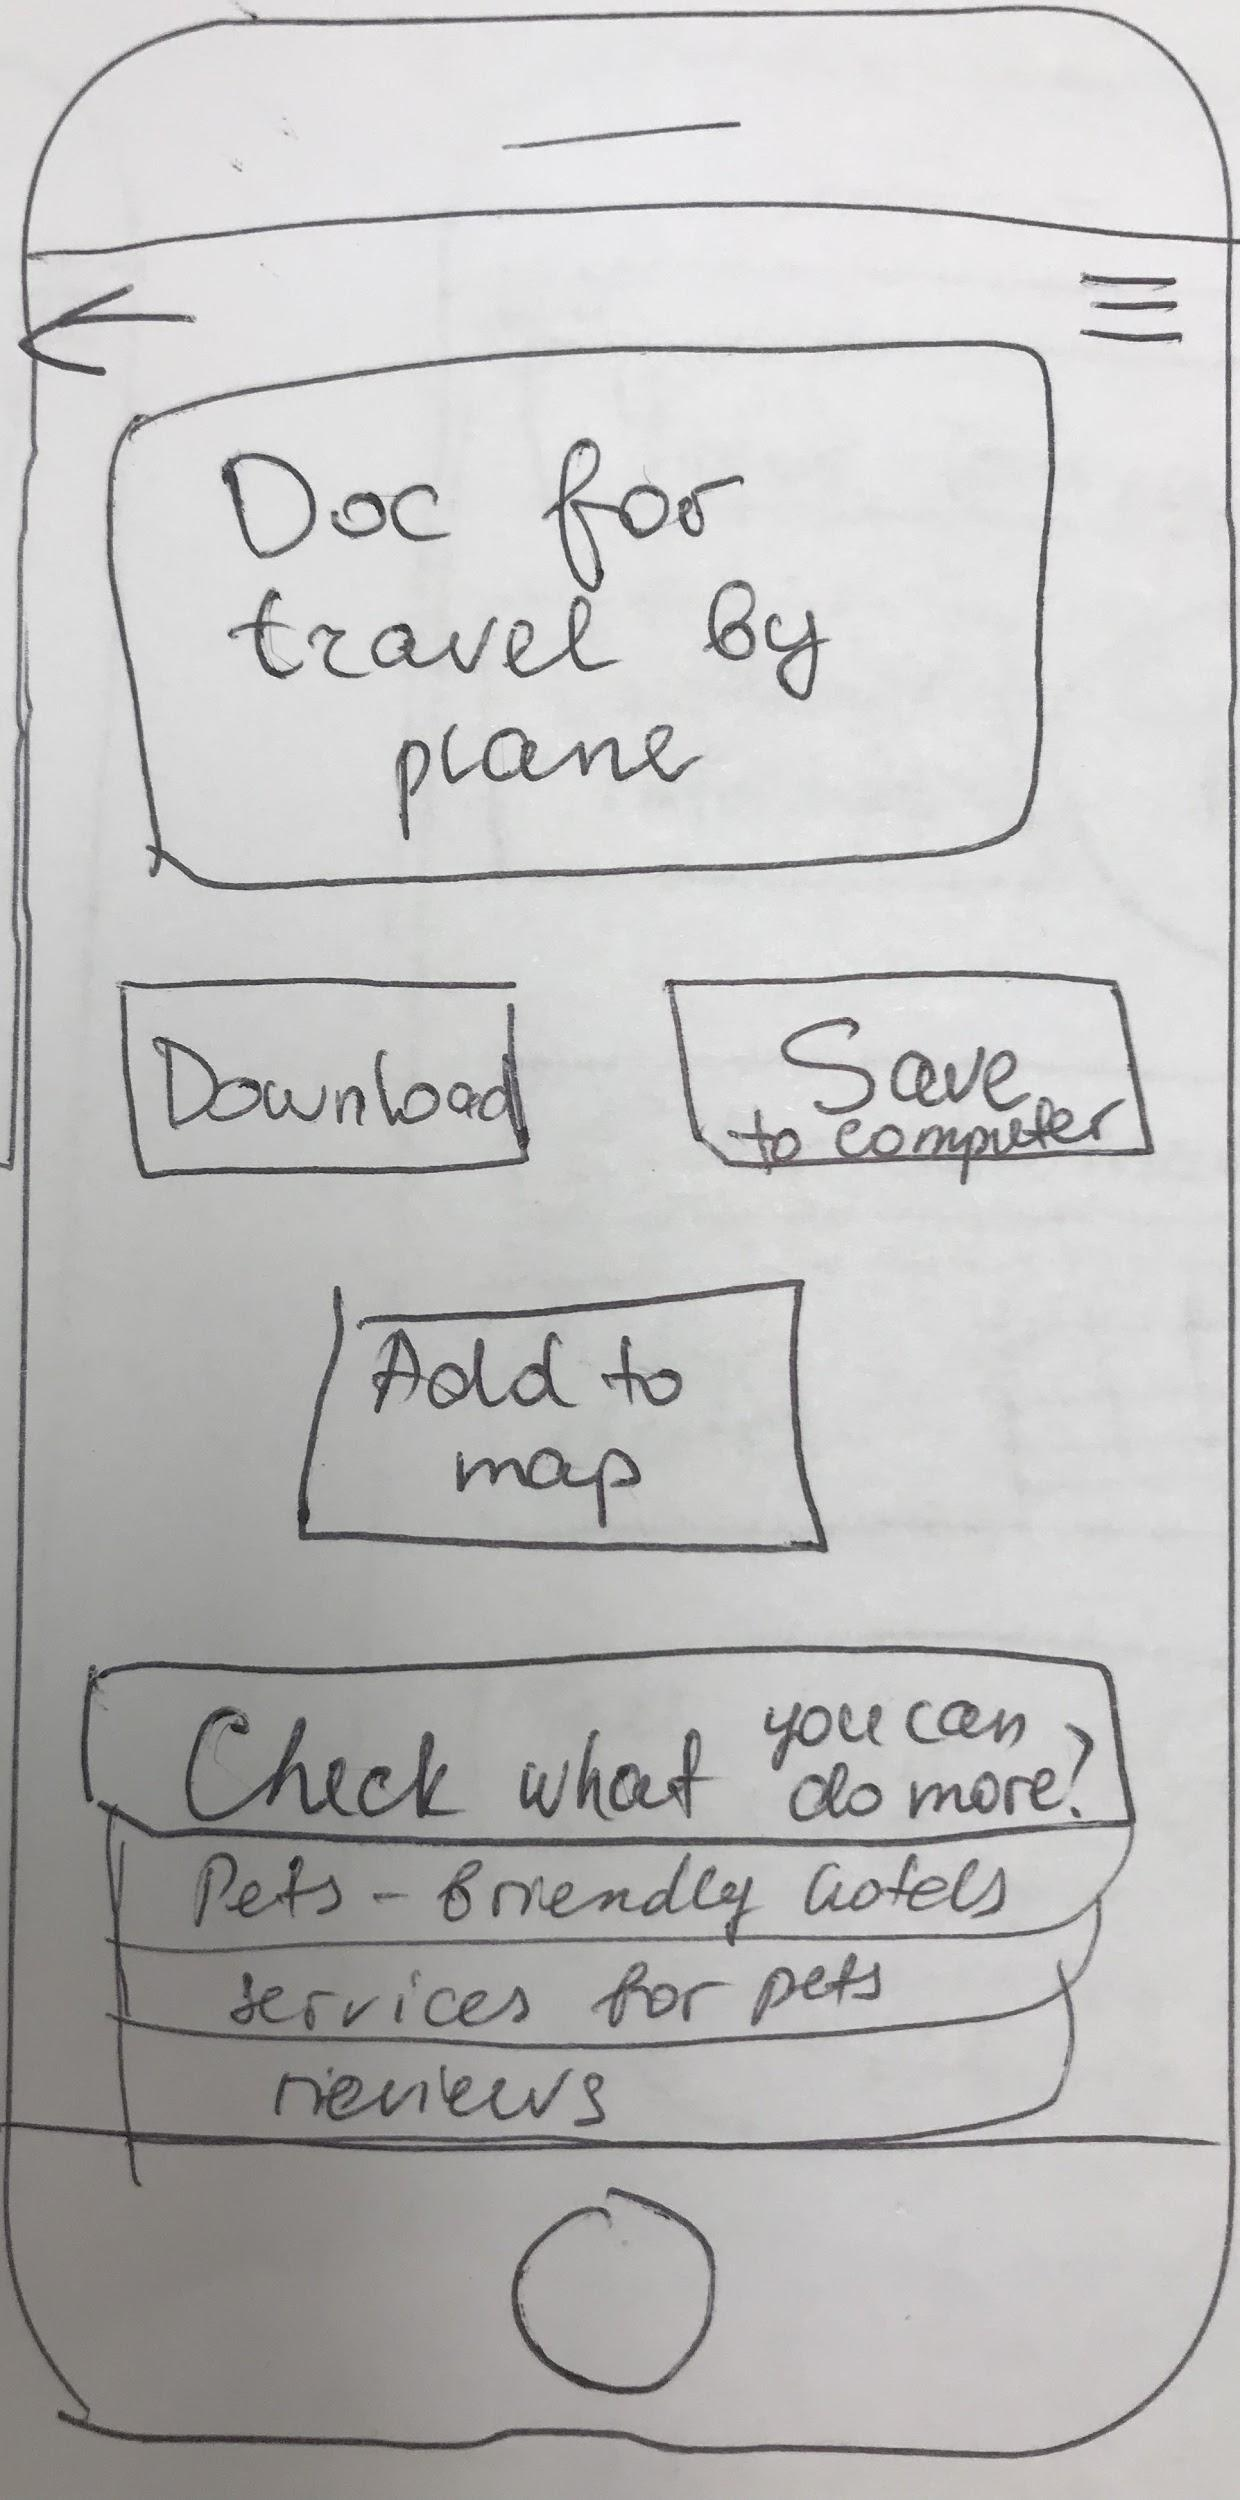 Doc for
travel by
plane
Download
Save
to computer
Add to
map
Check what you can
do more?
Pets - friendly hotels
services for pets
reviews